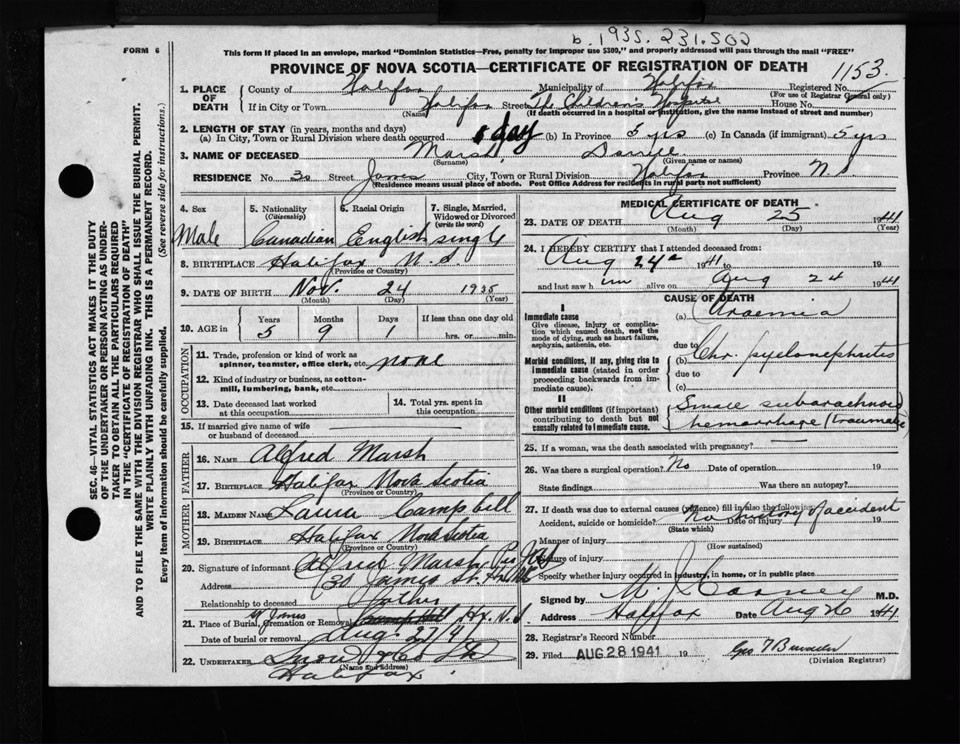 b. 1935. 231.502
FORM 6
This form if placed in an envelope, marked "Dominion Statistics—Free, penalty for improper use $300," and properly addressed will pass through the mail "FREE"
PROVINCE OF NOVA SCOTIA—CERTIFICATE OF REGISTRATION OF DEATH
1153
1. PLACE OF DEATH
County of Halifax Municipality of Halifax Registered No.
(For use of Registrar General only)
If in City or Town Halifax Street The Children's Hospital House No.
(Name) (If death occurred in a hospital or institution, give the name instead of street and number)
2. LENGTH OF STAY (in years, months and days)
(a) In City, Town or Rural Division where death occurred 1 day (b) In Province 5 yrs (c) In Canada (if immigrant) 5 yrs
3. NAME OF DECEASED Marsh,
(Surname) (Given name or names)
RESIDENCE No. 30 Street James City, Town or Rural Division Halifax Province N.S
(Residence means usual place of abode. Post Office Address for residents in rural parts not sufficient)
4. Sex
Male
5. Nationality
(Citizenship)
Canadian
6. Racial Origin
English
7. Single, Married, Widowed or Divorced
(write the word)
single
8. BIRTHPLACE Halifax N.S.
(Province or Country)
9. DATE OF BIRTH Nov. 24 1935
(Month) (Day) (Year)
10. AGE in
Years Months Days If less than one day old
5 9 1 hrs. or min.
OCCUPATION
11. Trade, profession or kind of work as spinner, teamster, office clerk, etc. none
12. Kind of industry or business, as cotton-mill, lumbering, bank, etc.
13. Date deceased last worked at this occupation
14. Total yrs. spent in this occupation
15. If married give name of wife or husband of deceased
FATHER
16. NAME Alfred Marsh
17. BIRTHPLACE Halifax Nova Scotia
(Province or Country)
MOTHER
18. MAIDEN NAME Laura Campbell
19. BIRTHPLACE Halifax Nova Scotia
(Province or Country)
20. Signature of informant Alfred Marsh
Address 30 James St.
Relationship to deceased Father
21. Place of Burial, Cremation or Removal St James Hfx. N.S
Date of burial or removal Aug. 27/41
22. UNDERTAKER Snow & Co Ltd
(Name and Address)
Halifax
MEDICAL CERTIFICATE OF DEATH
23. DATE OF DEATH Aug 25 1941
(Month) (Day) (Year)
24. I HEREBY CERTIFY that I attended deceased from:
Aug 24 1941 to 19
and last saw him alive on Aug 24 1941
CAUSE OF DEATH
I
Immediate cause
Give disease, injury or complication which caused death, not the mode of dying, such as heart failure, asphyxia, asthenia, etc.
(a) Uraemia
due to
Morbid conditions, if any, giving rise to immediate cause (stated in order proceeding backwards from immediate cause).
(b) Chr. pyelonephritis
due to
(c)
II
Other morbid conditions (if important) contributing to death but not causally related to immediate cause.
Small subarachnoid
hemorrhage (traumatic)
25. If a woman, was the death associated with pregnancy?
26. Was there a surgical operation? No Date of operation 19
State findings Was there an autopsy?
27. If death was due to external causes (violence) fill in also the following:
Accident, suicide or homicide? No history of accident Date of injury 19
(State which)
Manner of injury
(How sustained)
Nature of injury
Specify whether injury occurred in industry, in home, or in public place
Signed by M. J. Carney M.D.
Address Halifax Date Aug 26 1941
28. Registrar's Record Number
29. Filed AUG 28 1941 19
(Division Registrar)
SEC. 46—VITAL STATISTICS ACT MAKES IT THE DUTY
OF THE UNDERTAKER OR PERSON ACTING AS UNDER-
TAKER TO OBTAIN ALL THE PARTICULARS REQUIRED
IN THE "CERTIFICATE OF REGISTRATION OF DEATH"
AND TO FILE THE SAME WITH THE DIVISION REGISTRAR WHO SHALL ISSUE THE BURIAL PERMIT.
WRITE PLAINLY WITH UNFADING INK. THIS IS A PERMANENT RECORD.
Every item of information should be carefully supplied. (See reverse side for instructions.)